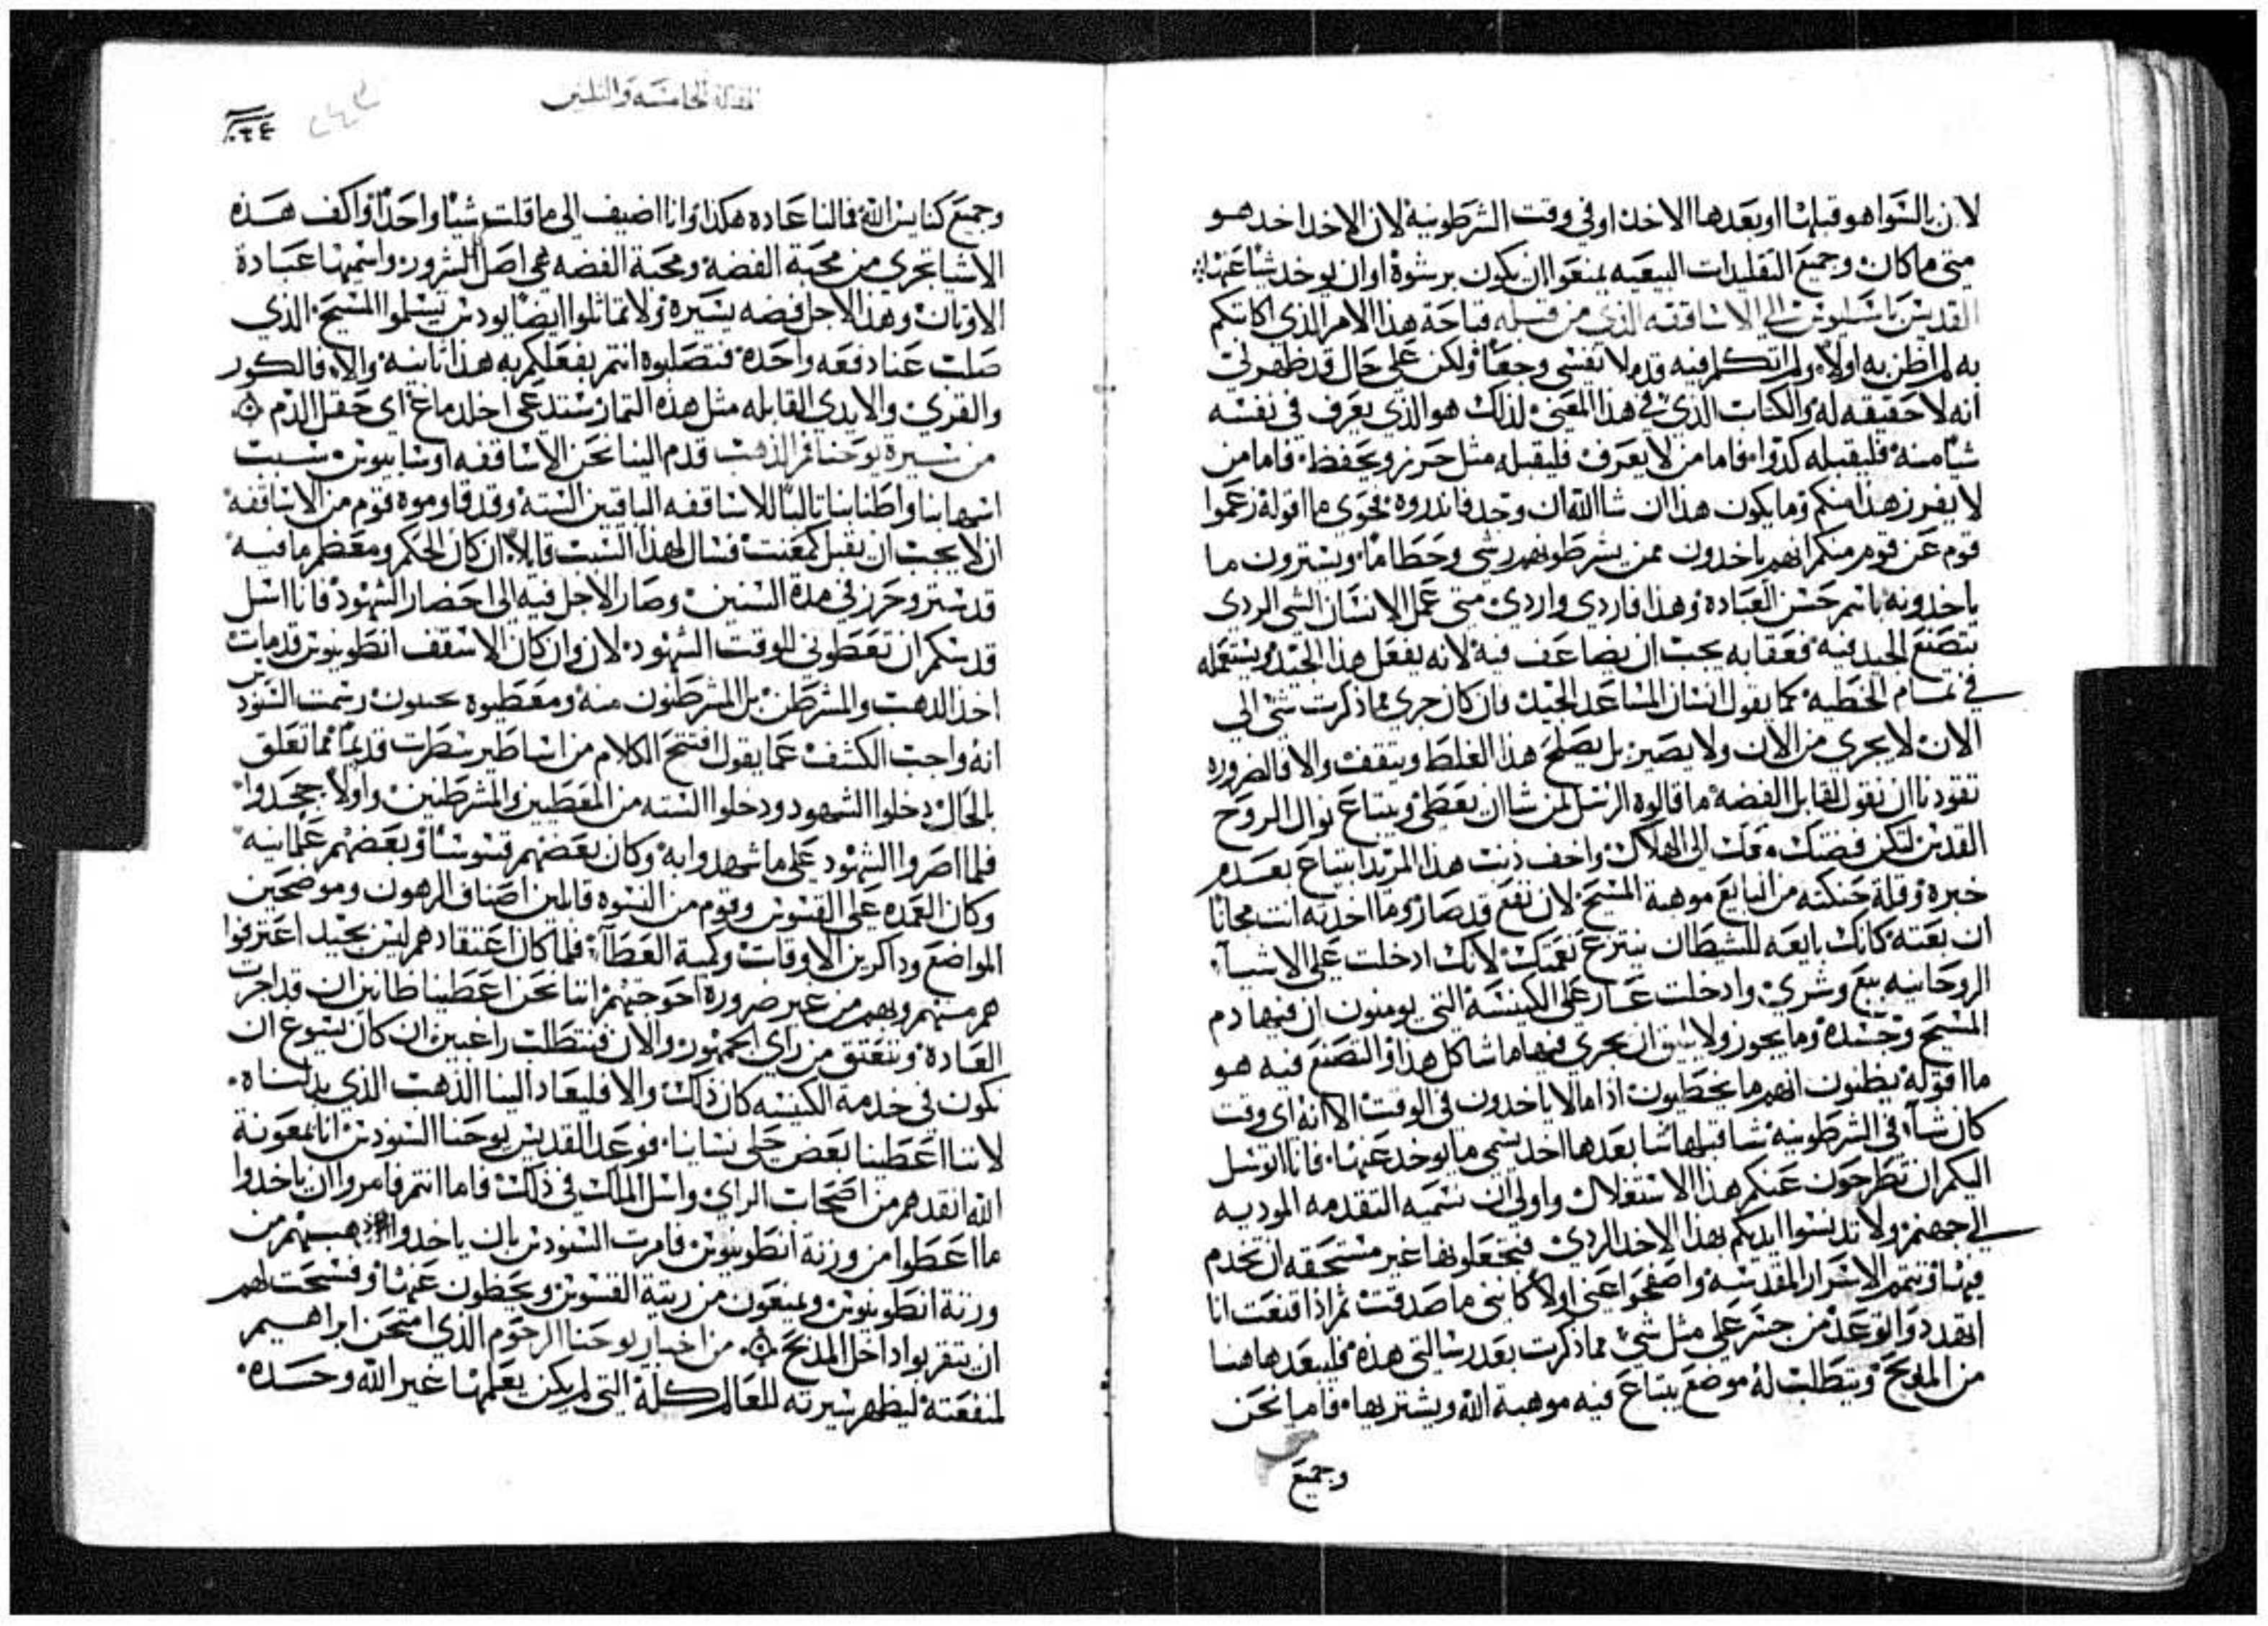 لان بالسوا هو قبلها او بعدها الاخذ او في وقت الشرطونية لان الاخذ اخد هو
متى ما كان وجميع التقليدات البيعيه يمنعوا ان يكون برشوة او ان يوخد شيا عنها
القديس باسيليوس الي الاساقفه الذي من قبله قباحة هذا الامر الذي اكاتبكم
به لم اظن به اولا ولم اتكلم فيه قدم لا نفسي وجعا ولكن علي حال قد ظهر لي
انه لا حقيقه له والكتاب الذي في هذا المعني لذلك هو الذي يعرف في نفسه
شيا منه فليقبله كدوا فاما من لا يعرف فليقبله مثل حرز ويحفظ فاما من
لا يفرز هذا منكم وما يكون هذا ان شا الله ان وجد فاندروه فحوي ما اقوله زعموا
قوم عن قوم منكم انهم ياخدون ممن يشرطونهم رشي وحطاما ويسترون ما
ياخدونه باسم حسن العباده وهذا فاردي واردي متي عمل الانسان الشي الردي
بتصنع الجيد فيه فعقابه يجب ان يضاعف فيه لانه يفعل هذا الجيد ويستعمله
في تمام الخطيه كما يقول انسان المساعد الجيد فان كان جري مما ذكرت شي الي
الان لا يجري من الان ولا يصير بل يصلح هذا الغلط ويتقف والا فالضروره
تقودنا ان نقول لقابل الفضه ما قالوه الرسل لمن شا ان يعطي ويبتاع نوال الروح
القدس لتكن فضتك معك الي الهلاك واخف ذنب هذا المريد ابتياع بعدم
خبره وقلة حنكته من البايع موهبة المسيح لان نفع قد صار وما اخدته انت مجانا
ان بعته كانك بايعه للشيطان ينتزع نعمتك لانك ادخلت علي الاشيا
الروحانيه بيع وشري وادخلت عار علي الكنيسة التي يومنون ان فيها دم
المسيح وجسده وما يجوز ولا يليق ان يجري فيها ما شاكل هذا والتصنع فيه هو
ما اقوله يظنون انهم ما يخطيون اذا ما لا ياخدون في الوقت الا انه اي وقت
كان شا في الشرطونيه شا قبلها شا بعدها اخد يسمي ما يوخد عنها فانا اتوسل
اليكم ان تطرحون عنكم هذا الاستغلال واولي ان نسميه التقدمه الموديه
الي جهنم ولا تدنسوا ايديكم بهذا الاخد الردي فتجعلونها غير مستحقه ان تخدم
فيها وتتمم الاسرار المقدسه واصفحوا عني اولا كانني ما صدقت ثم اذا قنعت انا
اتهدد واتوعد من جسر علي مثل شي مما ذكرت بعد رسالتي هذه فليبعد هاهنا
من المذبح ويتطلب له موضع يبتاع فيه موهبة الله ويشتريها فاما نحن
وجميع
المقاله الخامسه والثلثين
وجميع كنايس الله فما لنا عاده هكذا وانا اضيف الي ما قلت شيا واحدا واكف هذه
الاشيا تجري من محبة الفضة ومحبة الفضه هي اصل الشرور واسميها عبادة
الاوثان وهذا لاجل فضه يسيره ولا تماثلوا ايضا يودس يسلموا المسيح الذي
صلب عنا دفعه واحده فتصلبوه انتم بفعلكم به هذا ثانيه والا فالكور
والقري والايدي القابله مثل هذه التمار ستدعي اخلدماغ اي حقل الدم
من سيرة يوحنا فم الذهب قدم الينا نحن الاساقفه اوسابيوس سبت
اسمها بنا واطنابنا تالبا للاساقفه الباقين السته وقد قاوموه قوم من الاساقفه
ان لا يجب ان يقبل كمعنت فسال لهذا السبت قايلا ان كان الحكم ومعظم ما فيه
قد ستر وحرز في مدة السنين وصار الاجل فيه الي احضار الشهود فانا اسل
قدسكم ان تعطوني الوقت الشهود لان وان كان الاسقف انطونينوس قد مات
اخذ الذهب والمشرطن بل المشرطنون منه ومعطيوه يحيون رسمت السنودس
انه واجب الكشف عما يقول افتتح الكلام من اساطير سطرت قديما مما تعلق
بالحال دخلوا الشهود ودخلوا السته من المعطين والمشرطنين واولا جحدوا
فلما اصروا الشهود علي ما شهدوا به وكان بعضهم قسوسا وبعضهم علمانيه
وكان العمده علي القسوس وقوم من النسوه قابلين اصناف الرهون وموضحين
المواضع وداكرين الاوقات وكمية العطا فلما كان اعتقادهم ليس بجيد اعترفوا
هم منهم وبهم من غير ضرورة احوجتهم اننا نحن اعطينا ظانين ان قد اجرت
العادة ونتعتق من راي الجمهور والان فنتطلب راغبين ان كان يسوغ ان
نكون في خدمة الكنيسه كان ذلك والا فليعاد الينا الذهب الذي بدلناه
لاننا اعطينا بعض حلي نساينا فوعد القديس يوحنا السنودس انا بمعونة
الله انقدهم من اصحاب الراي واسل الملك في ذلك فاما انتم فامروا ان ياخدوا
ما اعطوا من ورثة انطونينوس فامرت السنودس بان ياخدوا ذهبهم من
ورثة انطونينوس ويمنعون من رتبة القسوس ويحطون عنها وفسحت لهم
ان يتقربوا داخل المذبح من اخبار يوحنا الرحوم الذي امتحن ابراهيم
لمنفعته ليظهر سيرته للعالم كله التي لم يكن يعلمها غير الله وحده